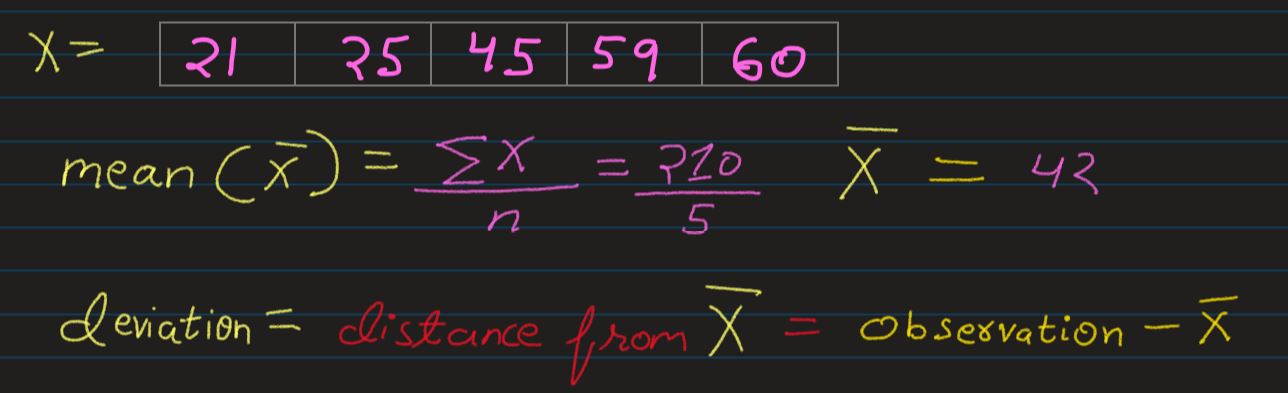 X = 21 25 45 59 60
mean (x̄) = ΣX/n = 210/5 X̄ = 42
deviation = distance from X̄ = observation - x̄